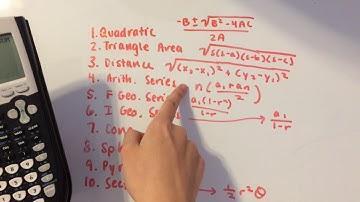 1. Quadratic -B ± √B² - 4AC / 2A
2. Triangle Area √s(s-a)(s-b)(s-c)
3. Distance √(x₂-x₁)² + (y₂-y₁)²
4. Arith. Series n(a₁+an / 2)
5. F Geo. Series a₁(1-rⁿ) / 1-r
6. I Geo. S → a₁ / 1-r
7. Con
8. Sp
9. Pyr
10. Sec → 1/2 r² θ